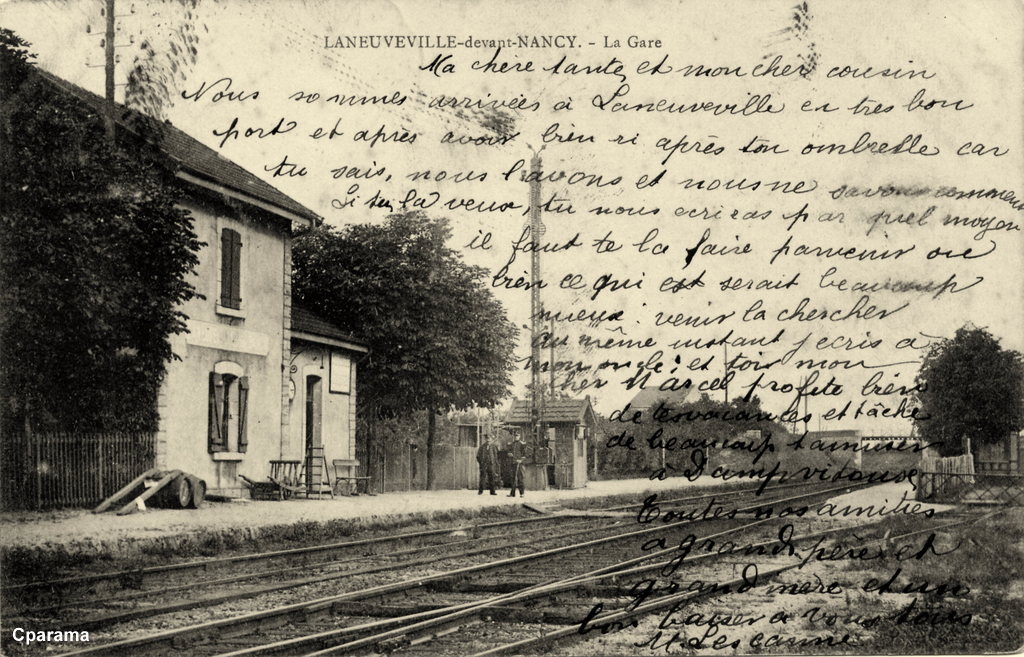 LANEUVEVILLE-devant-NANCY. - La Gare
Ma chère tante, et mon cher cousin
Nous sommes arrivées à Laneuveville en très bon
port et après avoir bien ri après ton ombrelle car
tu sais, nous l'avons et nous ne savons comment
Si tu la veux, tu nous ecriras par quel moyen
il faut te la faire parvenir ou
bien ce qui est serait beaucoup
mieux: venir la chercher
au même instant j'ecris à
mon oncle; et toi mon
cher Marcel profite bien
de tes vacances et tâche
de beaucoup t'amuser
à Dampvitoux
Toutes nos amitiés
a grand père et
grand mere et un
bon baiser a vous tous
M Lescanne
Cparama